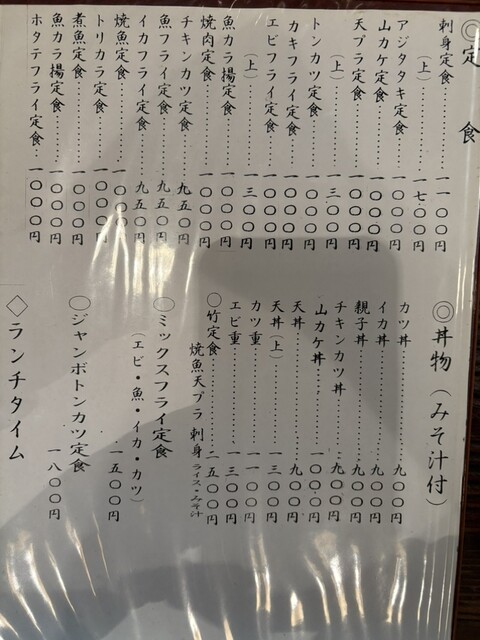 ◎定食
刺身定食……一一〇〇円
（上）……一七〇〇円
アジタタキ定食……一〇〇〇円
山カケ定食……一〇〇〇円
天プラ定食……一〇〇〇円
（上）……一三〇〇円
トンカツ定食……一〇〇〇円
カキフライ定食……一〇〇〇円
エビフライ定食……一〇〇〇円
（上）……一三〇〇円
魚カラ揚定食……一〇〇〇円
焼肉定食……一〇〇〇円
チキンカツ定食……九五〇円
魚フライ定食……九五〇円
イカフライ定食……九五〇円
焼魚定食……一〇〇〇円
トリカラ定食……一〇〇〇円
煮魚定食……一〇〇〇円
魚カラ揚定食……一〇〇〇円
ホタテフライ定食……一〇〇〇円
◎丼物（みそ汁付）
カツ丼……九〇〇円
イカ丼……九〇〇円
親子丼……九〇〇円
チキンカツ丼……九〇〇円
山カケ丼……一〇〇〇円
天丼……九〇〇円
天丼（上）……一三〇〇円
カツ重……一一〇〇円
エビ重……一三〇〇円
○竹定食……二五〇〇円
焼魚天プラ 刺身 ライス・みそ汁
○ミックスフライ定食
（エビ・魚・イカ・カツ）
一五〇〇円
○ジャンボトンカツ定食
一八〇〇円
◇ランチタイム